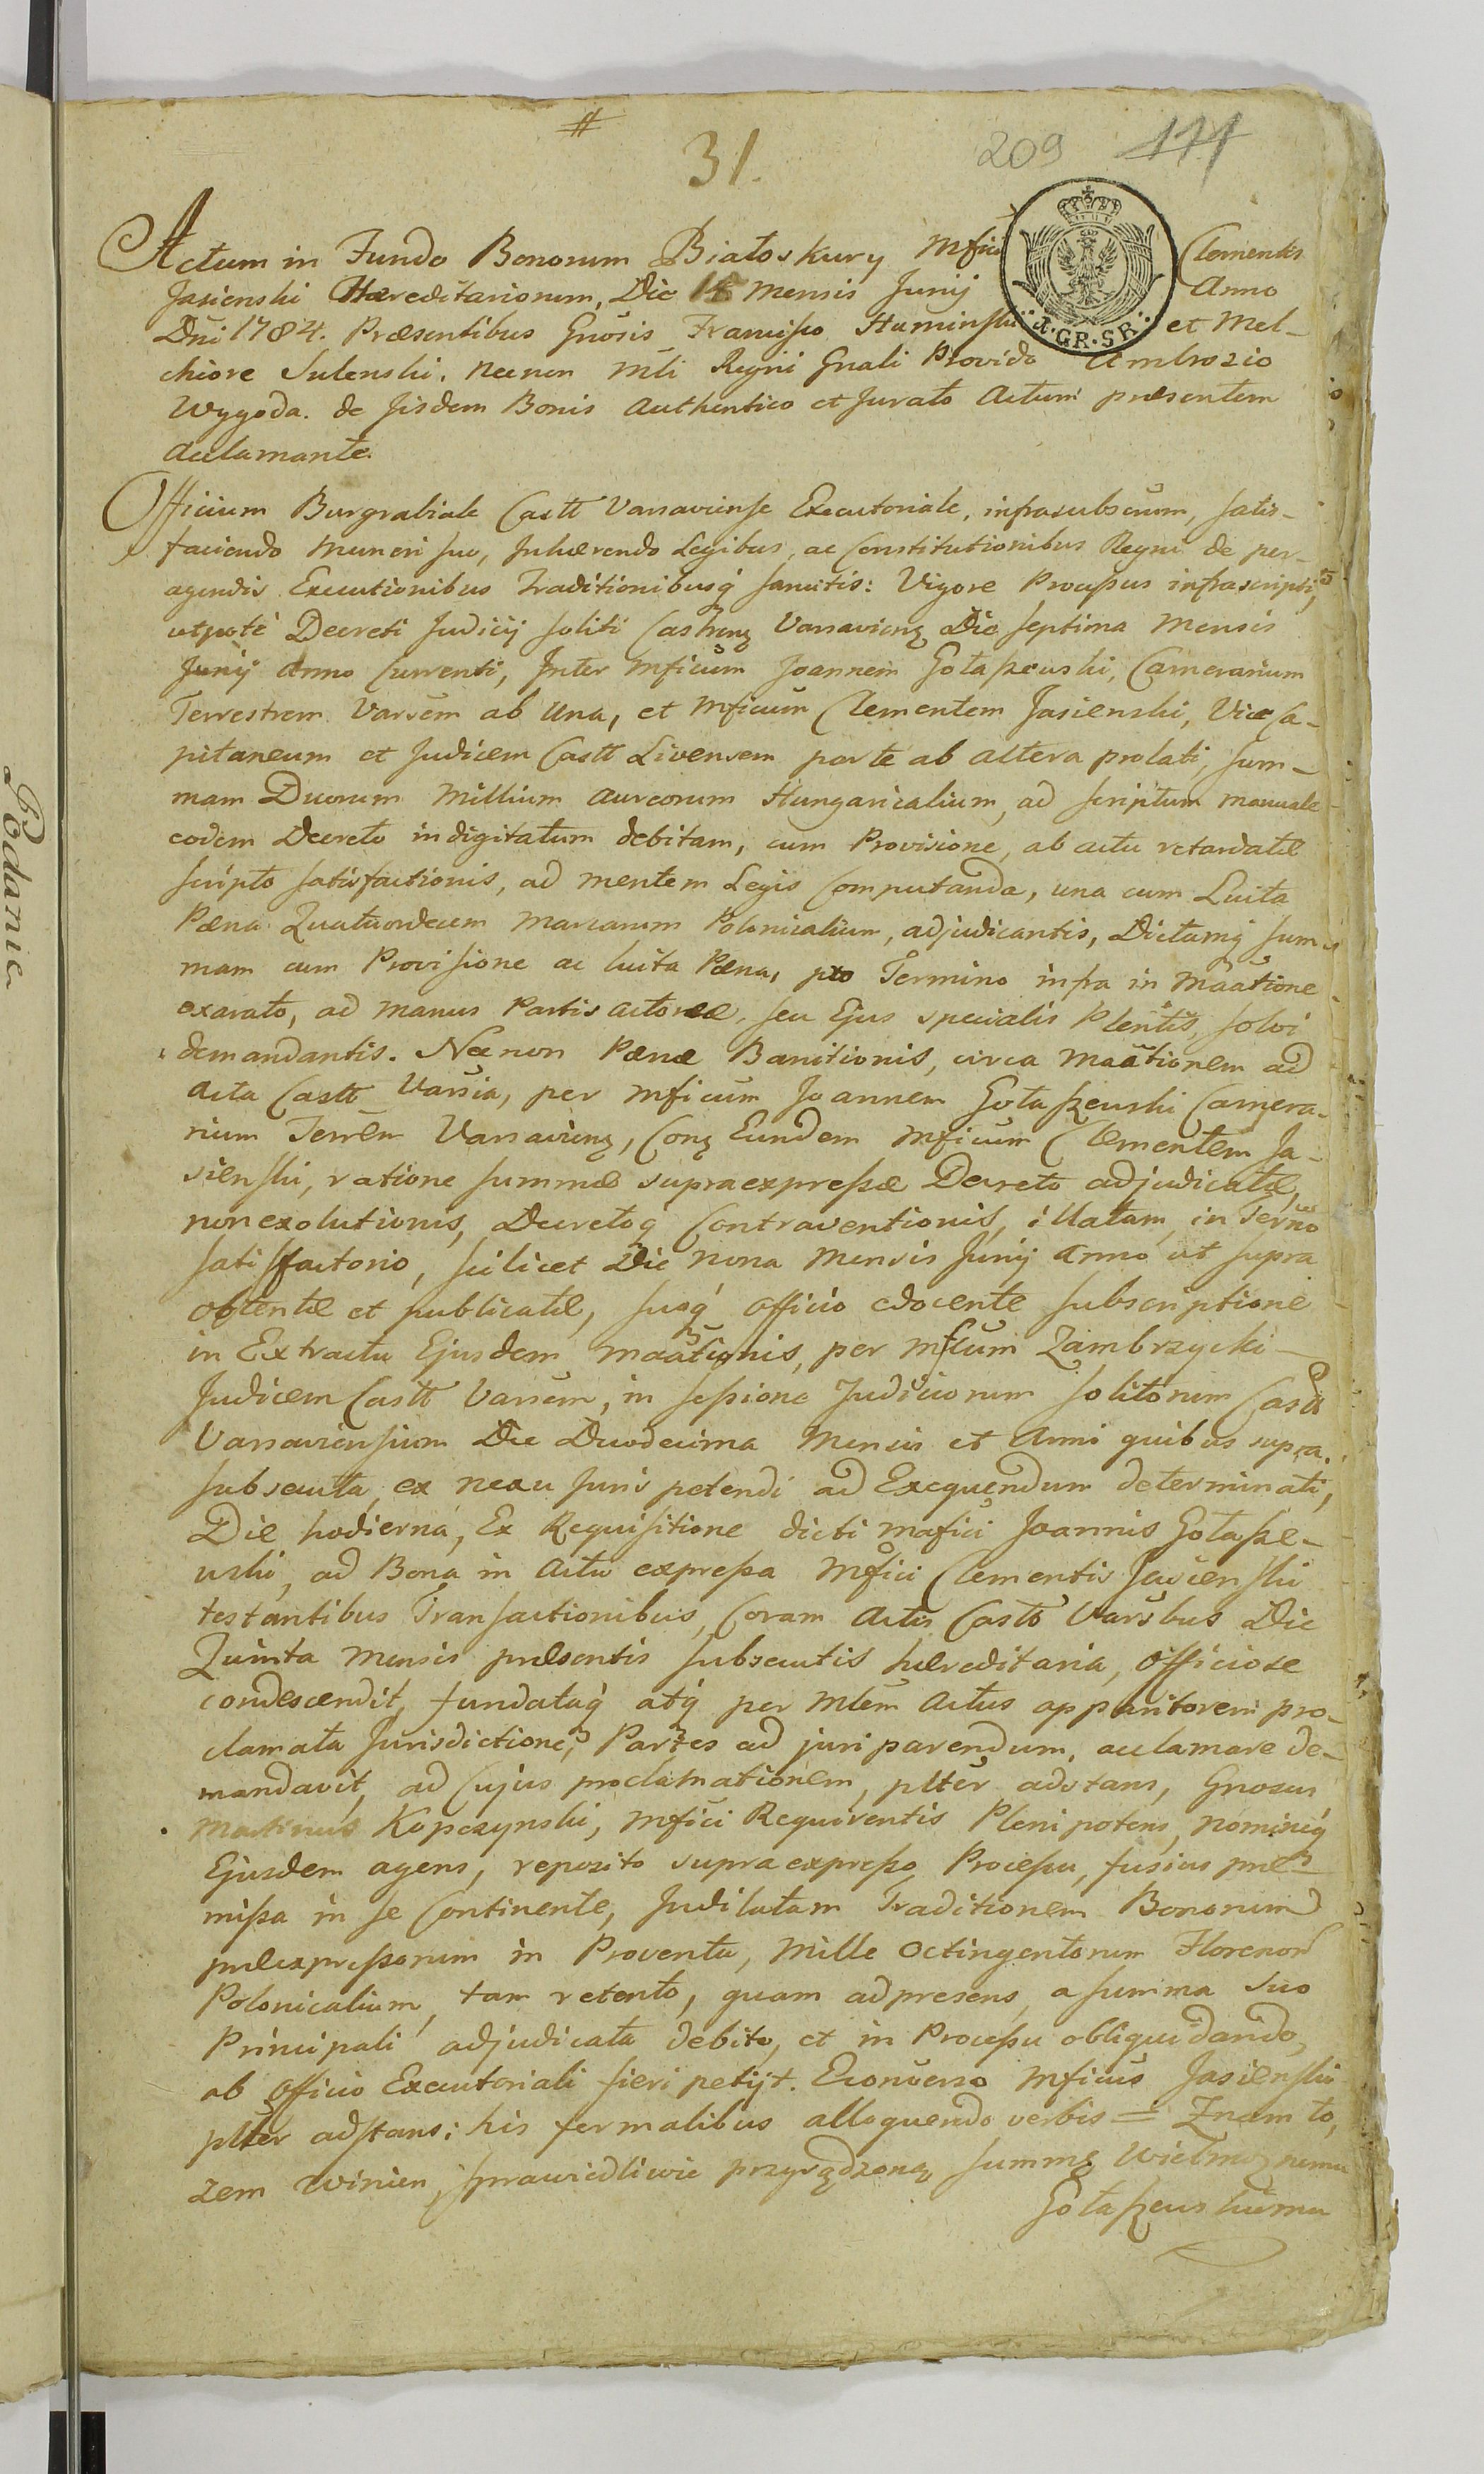 #
31.
209 171
Actum in Fundo Bonorum Białoskury Mfici Clementis
Jasienski Hæreditariorum, Die 14 Mensis Junij Anno
Dñi 1784. Præsentibus Gnosis Francisco Huminski et Mel-
chiore Sulenski. Necnon Mli Regni Gnali Provido Ambrozio
Wygoda. de Jisdem Bonis Authentico et Jurato Actum præsentem
acclamante.
A. GR. SR.
Officium Burgrabiale Castt Varsaviense Executoriale, infrasubscum, satis-
faciendo Muneri suo, Inhærendo Legibus, ac Constitutionibus Regni de per-
agendis Executionibus Traditionibusq́ sancitis: Vigore Processus infrascripti,
utpote Decreti Judicij soliti Castreng Varsavieng Die septima Mensis
Junij Anno Currenti, Inter Mficum Joannem Gołaszewski, Camerarium
Terrestrem Varsem ab Una, et Mficum Clementem Jasienski, Vice Ca-
pitaneum et Judicem Castt Livensem parte ab altera prolati, sum-
mam Duorum Millium Aureorum Hungaricalium, ad scriptum manuale
eodem Decreto indigitatum debitam, cum Provisione, ab actu retardatæ
scripto satisfactionis, ad mentem Legis Computanda, una cum Luita
Pæna Quatuordecem Marcarum Polonicalium, adjudicantis, Dictamq́ sum-
mam cum Provisione ac luita Pæna, pro Termino infra in Maatione
exarato, ad manus Partis actoreæ, seu Ejus specialis Plentis, solvi
demandantis. Necnon Pænæ Banitionis, circa Maationem ad
Acta Castt Varsia, per Mficum Joannem Gołaszewski Camera-
rium Terrem Varsavieng, Cong Eundem Mficum Clementem Ja-
sienski, ratione summæ supraexpressæ Decreto adjudicatæ,
nonexolutionis, Decretoq Contraventionis, illatam, in Terño
satisfactorio, scilicet Die nona Mensis Junij Anno ut supra
obtentæ et publicatæ, suoq́ officio edocente subscriptione
in Extractu Ejusdem Maationis, per Mficum Zambrzycki
Judicem Castt Varsem, in sessione Judiciorum solitorum Castt
Varsaviensium Die Duodecima Mensis et Anni quibus supra.
subsecuta, ex nexu Juris petendi ad Exequendum determinati,
Die hodierna, Ex Requisitione dicti Mafici Joannis Gołasze-
wski, ad Bona in Actu expressa Mfici Clementis Jasienski
testantibus Transactionibus, Coram Actis Castt Varsbus Die
Quinta Mensis præsentis subsecutis hæreditaria, officiose
condescendit, fundataq́ atq́ per Mlem Actus apparitorem pro-
clamata Jurisdictione, Partes ad juri parendum, acclamare de-
mandavit, ad Cujus proclamationem, plter adstans, Gnosus
Martinus Kopczynski, Mfici Requirentis Plenipotens, nomineq́
Ejusdem agens, reposito supraexpresso Processu, fusius præ-
missa in se Continente, Indilatam Traditionem Bonorum
præexpressorum in Proventu, Mille Octingentorum Florenor
Polonicalium, tam retento, quam adpresens, a summa suo
Principali adjudicata debito, et in Processu obliquidando,
ab Officio Executoriali fieri petijt. Econverso Mficus Jasienski
plter adstans: his formalibus alloquendo verbis = Znam to,
zem winien, sprawiedliwie przysądzoną summę Wielmoznemu
Gołaszewskiemu
Podanie